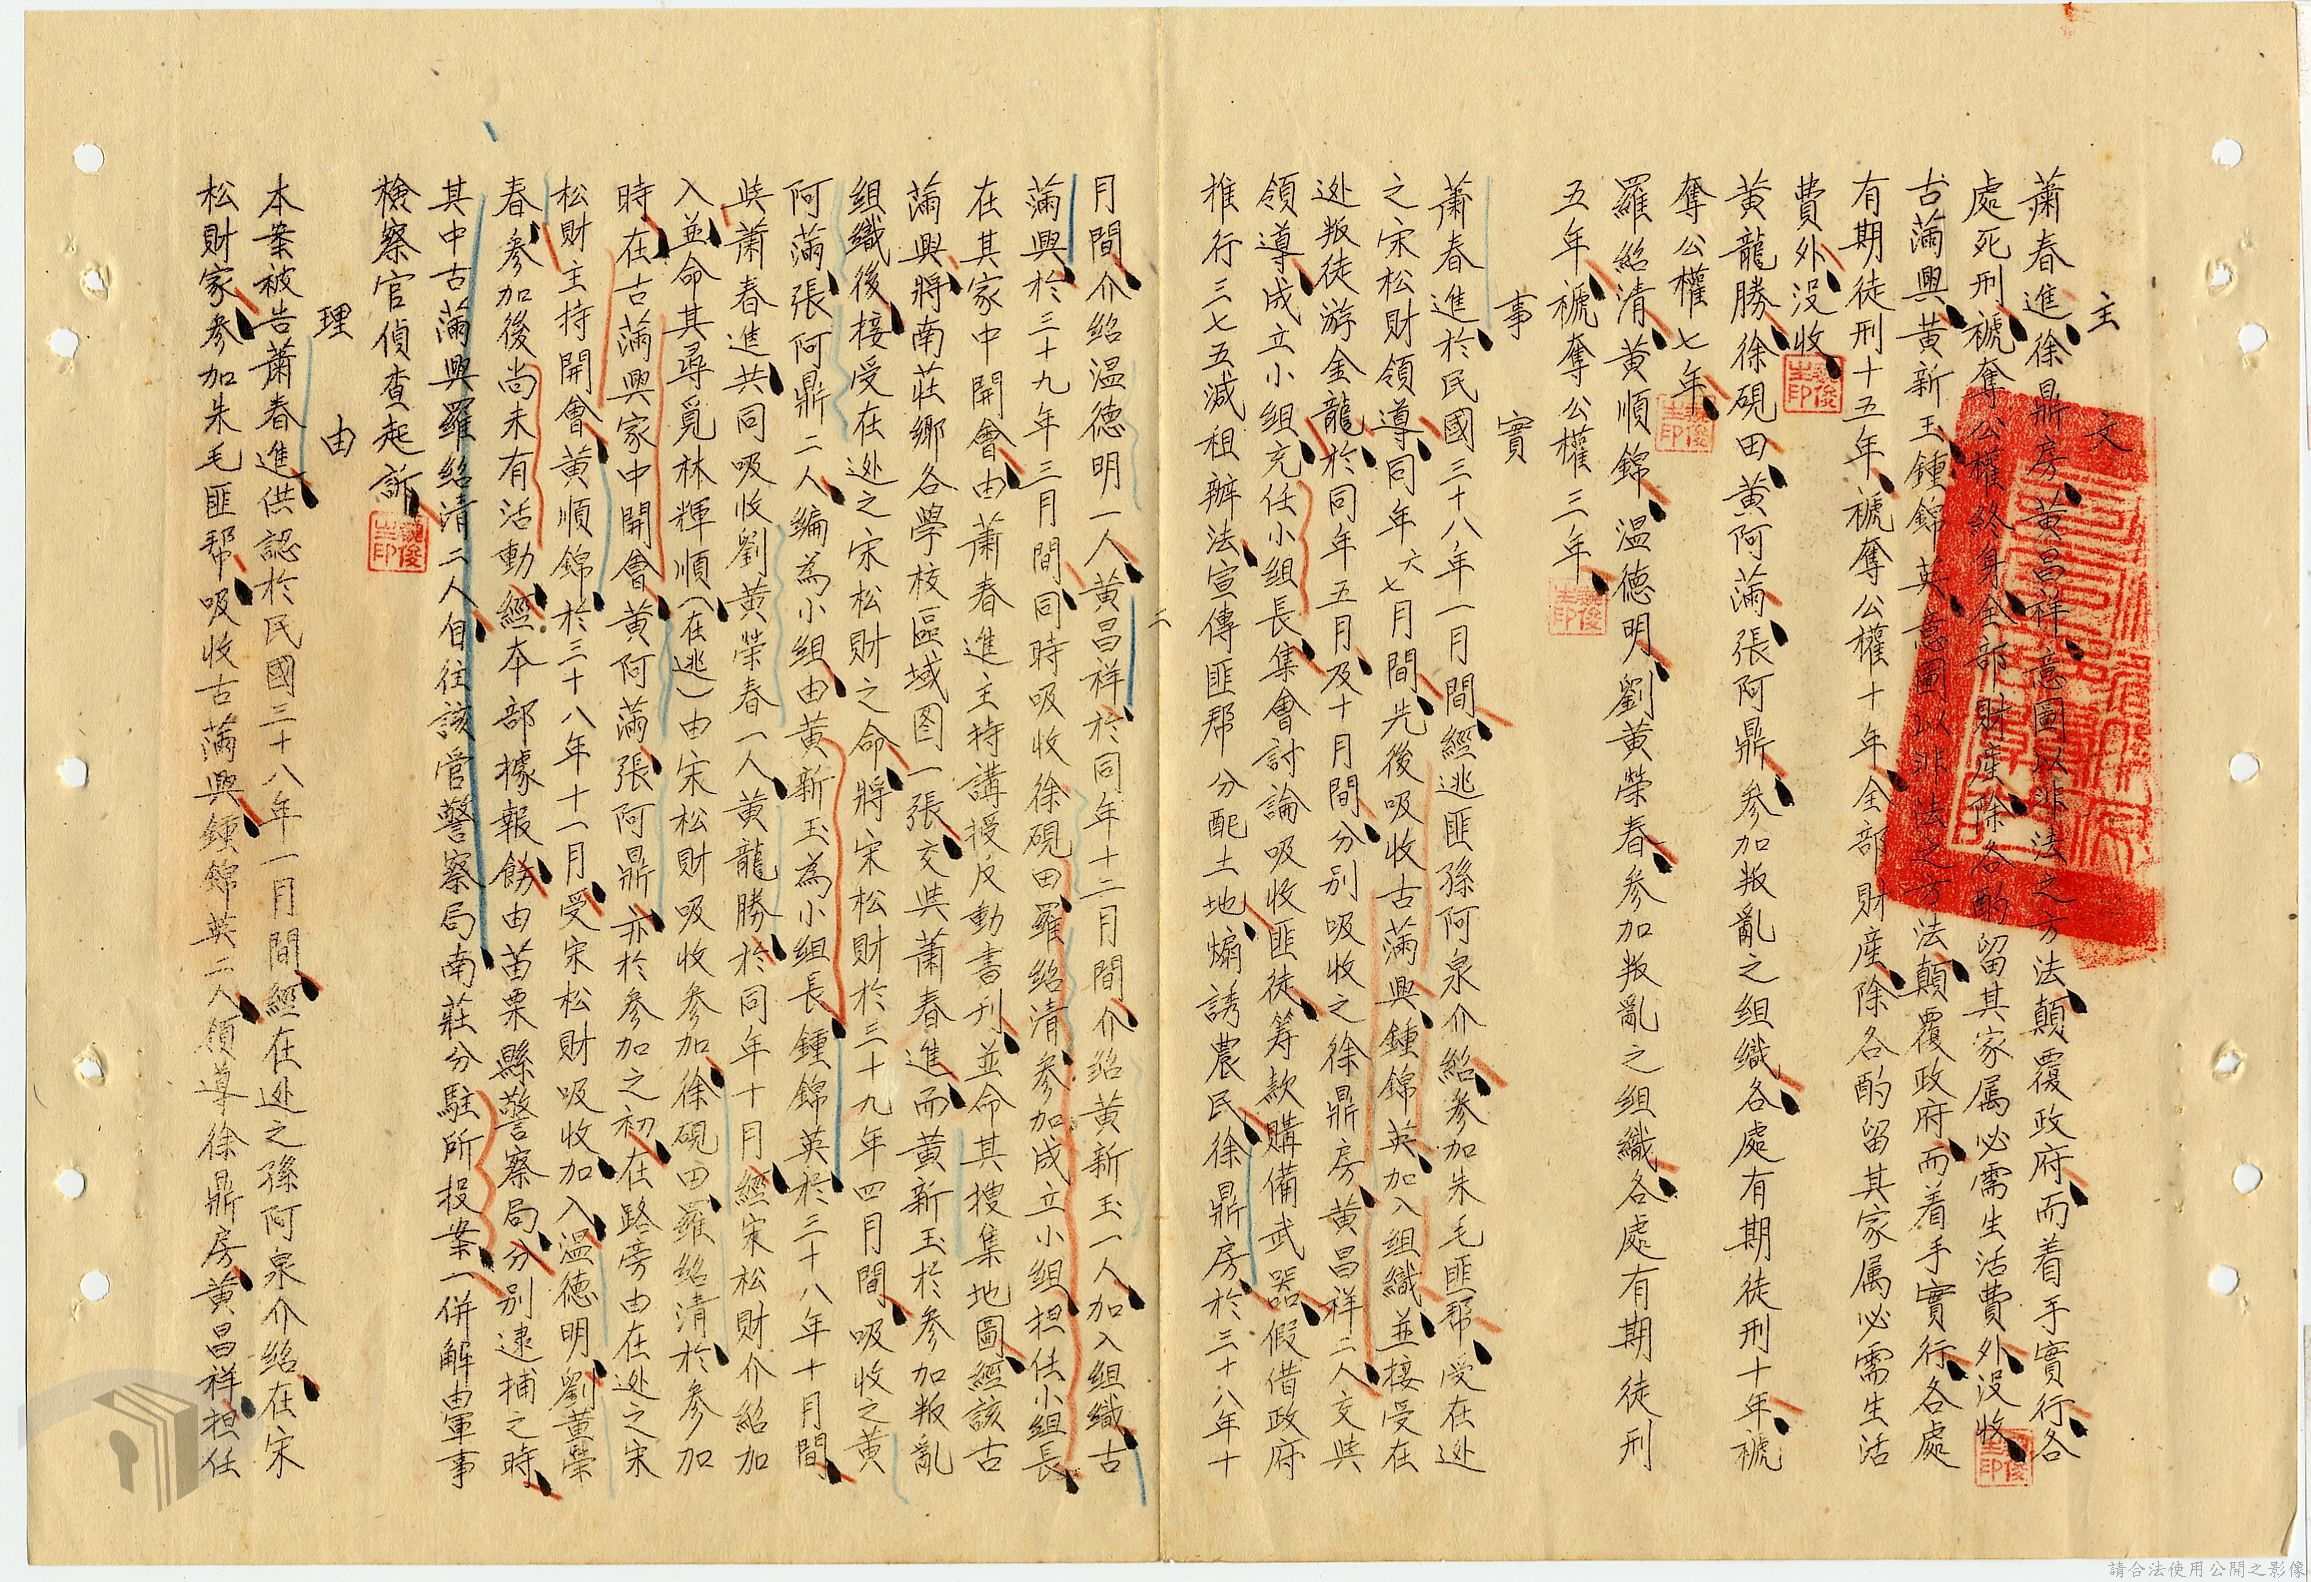 主文
蕭春進、徐鼎房、黃昌祥、意圖以非法之方法、顛覆政府、而着手實行、各
處死刑、褫奪公權終身、全部財產、除各酌留其家属必需生活費外、沒收、
古蘭興、黃新玉、鍾錦英、意圖以非法之方法、顛覆政府、而着手實行、各處
有期徒刑十五年、褫奪公權十年、全部財產、除各酌留其家属必需生活
費外、沒收、
黃龍勝、徐硯田、黃阿蘭、張阿鼎、參加叛亂之組織、各處有期徒刑十年、褫
奪公權七年、
羅紹清、黃順錦、溫德明、劉黃榮春、參加叛亂之組織、各處有期徒刑
五年、褫奪公權三年、
事實
蕭春進於民國三十八年一月間、經逃匪孫阿泉介紹、參加朱毛匪幫、受在逃
之宋松財領導、同年六七月間、先後吸收古蘭興、鍾錦英、加入組織、並接受在
逃叛徒游金龍、於同年五月、及十月間、分別吸收之徐鼎房、黃昌祥、二人、交與
領導、成立小組、充任小組長、集會討論吸收匪徒、筹款購備武器、假借政府
推行三七五減租辦法、宣傳匪幫分配土地、煽誘農民、徐鼎房、於三十八年十
二
月間、介紹溫德明一人、黃昌祥、於同年十二月間、介紹黃新玉一人、加入組織、古
蘭興、於三十九年三月間、同時吸收徐硯田、羅紹清、參加成立小組、担任小組長、
在其家中開會、由蕭春進主持講授反動書刊、並命其搜集地圖、經該古
蘭興、將南莊鄉各學校區域图一張、交與蕭春進、而黃新玉於參加叛亂
組織後、接受在逃之宋松財之命、將宋松財於三十九年四月間、吸收之黃
阿蘭、張阿鼎二人、編為小組、由黃新玉為小組長、鍾錦英、於三十八年十月間、
與蕭春進、共同吸收劉黃榮春一人、黃龍勝、於同年十月、經宋松財介紹加
入、並命其尋覓林輝順、(在逃)由宋松財吸收參加、徐硯田、羅紹清、於參加
時、在古蘭興家中開會、黃阿蘭、張阿鼎、亦於參加之初、在路旁由在逃之宋
松財主持開會、黃順錦、於三十八年十一月、受宋松財吸收加入、溫德明、劉黃榮
春、參加後尚未有活動、經本部據報飭由苗栗縣警察局、分別逮捕之時、
其中古蘭興羅紹清二人、自往該管警察局南莊分駐所投案、一併解由軍事
檢察官偵查起訴、
理由
本案被告蕭春進、供認於民國三十八年一月間、經在逃之孫阿泉介紹、在宋
松財家、參加朱毛匪幫、吸收古蘭興、鍾錦英二人、領導徐鼎房、黃昌祥、担任
請合法使用公開之影像